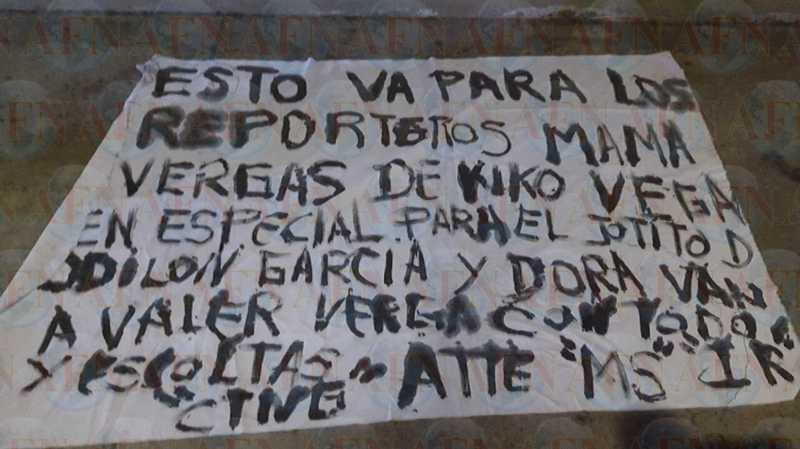 ESTO VA PARA LOS
REPORTEROS MAMA
VERGAS DE KIKO VEGA
EN ESPECIAL PARA EL JOTITO D
ODILON GARCIA Y DORA VAN
A VALER VERGA CON TODO
Y ESCOLTAS ATTE "MS" IR
"CTNG"
AFN